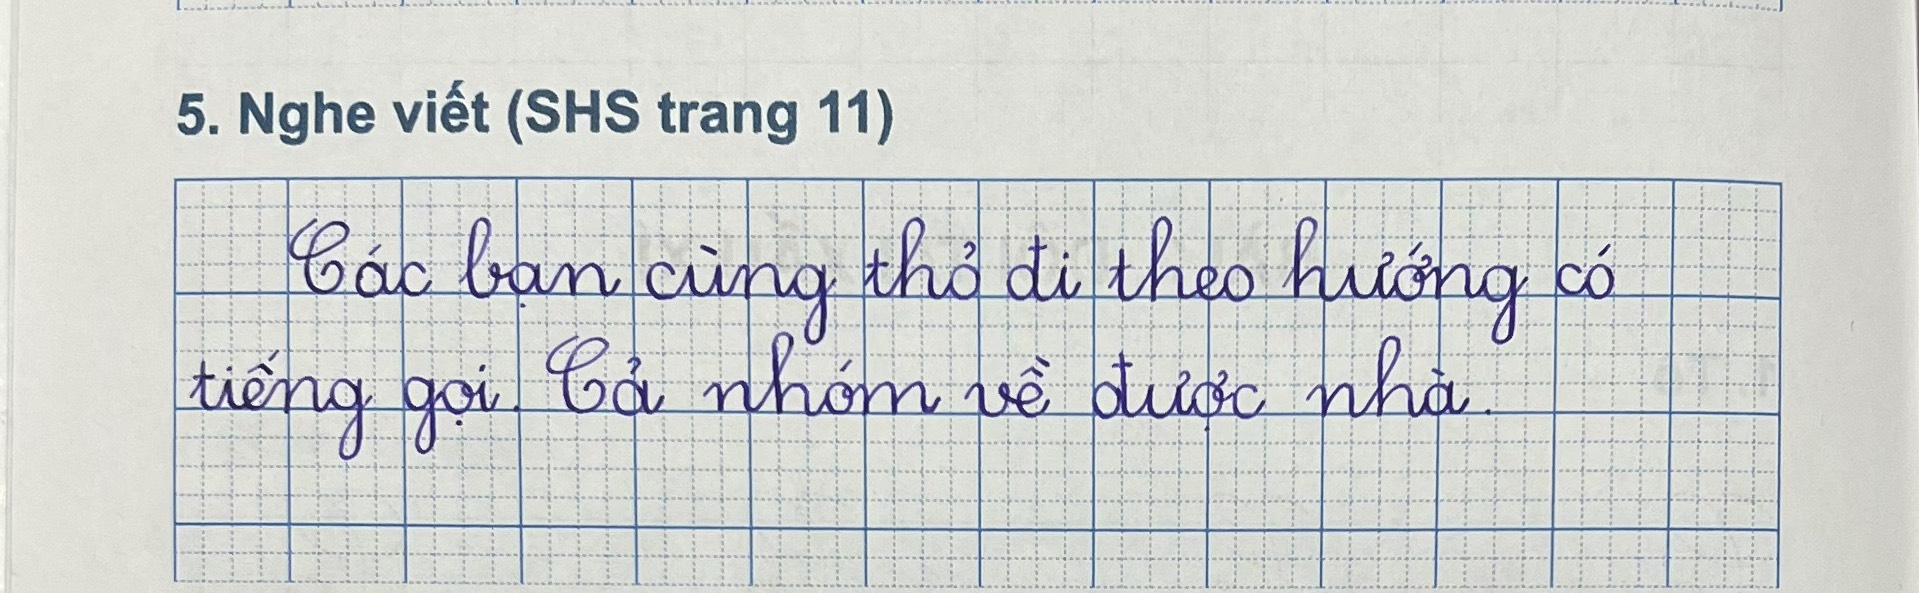 5. Nghe viết (SHS trang 11)
Các bạn cùng thỏ đi theo hướng có
tiếng gọi. Cả nhóm về được nhà.